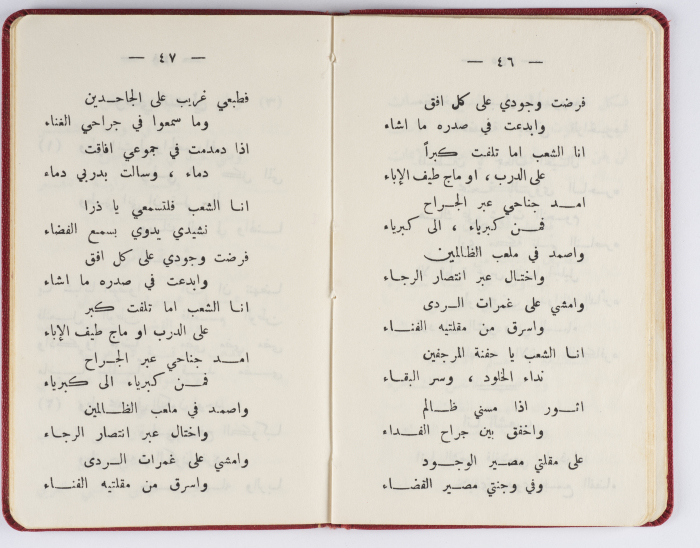 — ٤٦ —
فرضت وجودي على كل افق
وابدعت في صدره ما اشاء
انا الشعب اما تلفت كبراً
على الدرب ، او ماج طيف الإباء
امـد جناحي عبر الجـراح
فمـن كبرياء ، الى كبرياء
واصمد في ملعب الظـالمين
واختـال عبر انتصار الرجـاء
وامشي على غمرات الـردى
واسرق من مقلتيه الفنـاء
انـا الشعب يا حفنة المرجفين
نداء الخلود ، وسر البقـاء
اثـور اذا مسني ظـالم
واخفق بين جراح الفـداء
على مقلتي مصير الوجـود
وفي وجنتي مصير القضـاء
— ٤٧ —
فطبعي غريب على الجاحدين
وما سمعوا في جراحي الغناء
اذا دمدمت في جموعي افاقت
دماء ، وسالت بدربي دماء
انـا الشعب فلتسمعي يا ذرا
نشيدي يدوي بسمع الفضاء
فرضت وجودي على كل افق
وابدعت في صدره ما اشاء
انـا الشعب اما تلفت كبر
على الدرب او ماج طيف الإباء
امـد جناحي عبر الجـراح
فمـن كبرياء الى كبرياء
واصمد في ملعب الظـالمين
واختال عبر انتصار الرجـاء
وامشي على غمرات الـردى
واسرق من مقلتيه الفنـاء